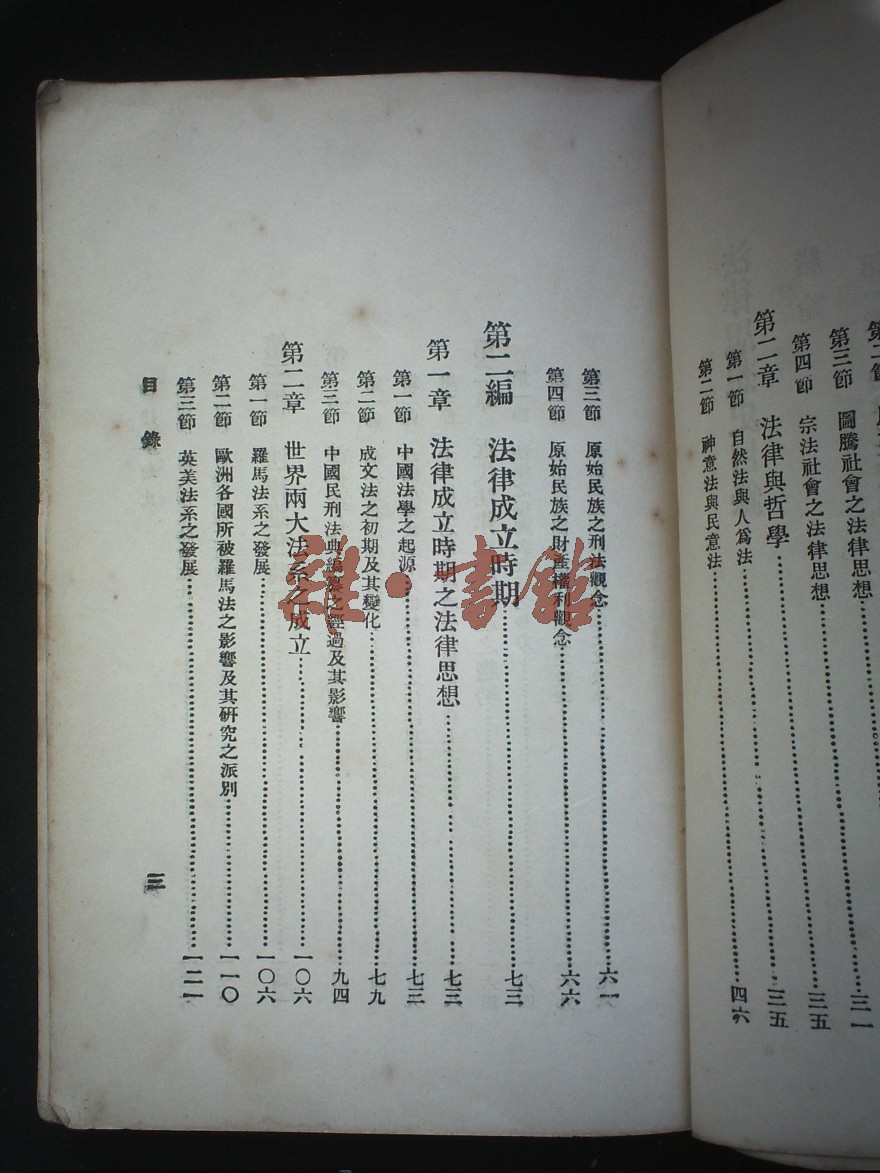 第三節 圖騰社會之法律思想……三一
第四節 宗法社會之法律思想……三五
第二章 法律與哲學……三五
第一節 自然法與人爲法
第二節 神意法與民意法……四六
第三節 原始民族之刑法觀念……六一
第四節 原始民族之財產權利觀念……六六
第二編 法律成立時期……七三
第一章 法律成立時期之法律思想……七三
第一節 中國法學之起源……七三
第二節 成文法之初期及其變化……七九
第三節 中國民刑法典編纂之經過及其影響……九四
第二章 世界兩大法系之成立……一〇六
第一節 羅馬法系之發展……一〇六
第二節 歐洲各國所被羅馬法之影響及其研究之派別……一一〇
第三節 英美法系之發展……一二一
目錄
三
雜·書館